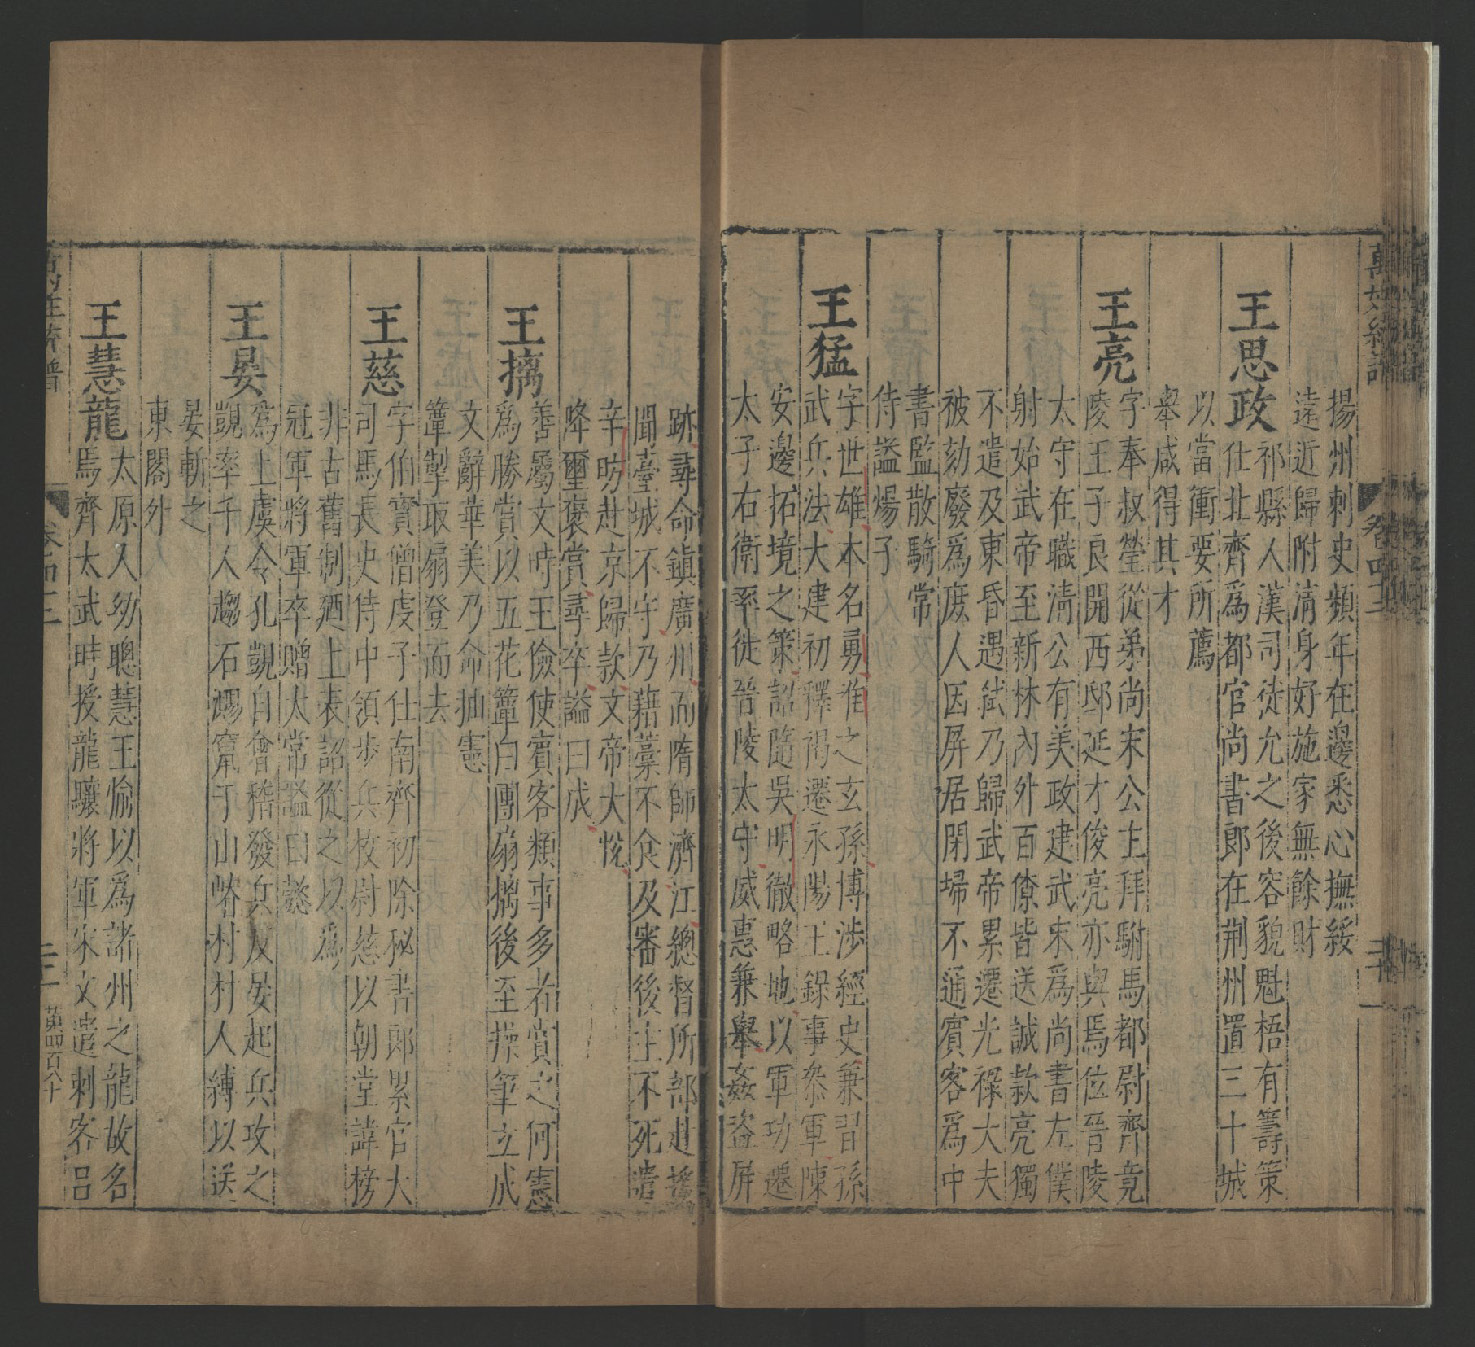 揚州刺史頻年在邊悉心撫綏
遠近歸附清身好施家無餘財
王思政
祁縣人漢司徒允之後容貌魁梧有籌策
仕北齊爲都官尚書郎在荆州置三十城
以當衝要所薦
舉咸得其才
王亮
字奉叔瑩從弟尚宋公主拜駙馬都尉齊竟
陵王子良開西邸延才俊亮亦與焉位晉陵
太守在職清公有美政建武末爲尚書左僕
射始武帝至新林內外百僚皆送誠款亮獨
不遣及東昏遇弑乃歸武帝累遷光祿大夫
被劾廢爲庶人因屏居閉埽不通賓客爲中
書監散騎常
侍謚煬子
王猛
字世雄本名勇准之玄孫博涉經史兼習孫
武兵法大建初釋褐遷永陽王錄事叅軍陳
安邊拓境之策詔隨吳明徹略地以軍功遷
太子右衛率徙晉陵太守威惠兼舉姦盗屏
跡尋命鎮廣州而隋師濟江總督所部赴援
聞臺城不守乃藉藁不食及審後主不死遣
辛昉赴京歸款文帝大悅
降璽褒賞尋卒謚曰成
王摛
善屬文時王儉使賓客𩔖事多者賞之何憲
爲勝賞以五花簟白團扇摛後至操筆立成
文辭華美乃命抽憲
簟掣取扇登而去
王慈
字伯寳僧虔子仕南齊初除秘書郎累官大
司馬長史侍中領步兵校尉慈以朝堂諱榜
非古舊制廼上表詔從之以爲
冠軍將軍卒贈太常謚曰懿
王晏
爲上虞令孔覬自會稽發兵反晏起兵攻之
覬率千人趨石瑒竄于山嵴村村人縛以送
晏斬之
東閣外
王慧龍
太原人幼聰慧王愉以爲諸州之龍故名
焉齊太武時授龍驤將軍宋文遣刺客呂